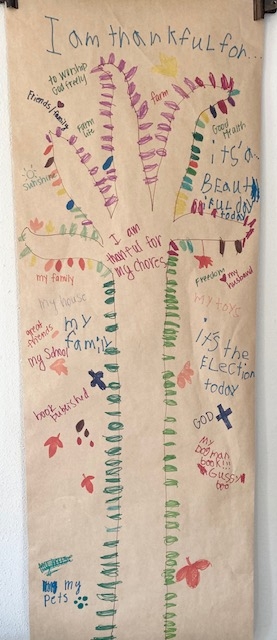 I am thankful for...
to worship
God freely
farm
Friends/family
Farm
life
Good Health
it's a
BEAUT
IFUL DAY
today
sunshine
I am
thankful for
my chores
my family
Freedom
my husband
my house
my toys
great
friends
my
family
my School
it's the
ELection
today
book published
GOD
my
boo man
book!!!
Gussy
boo
my
pets